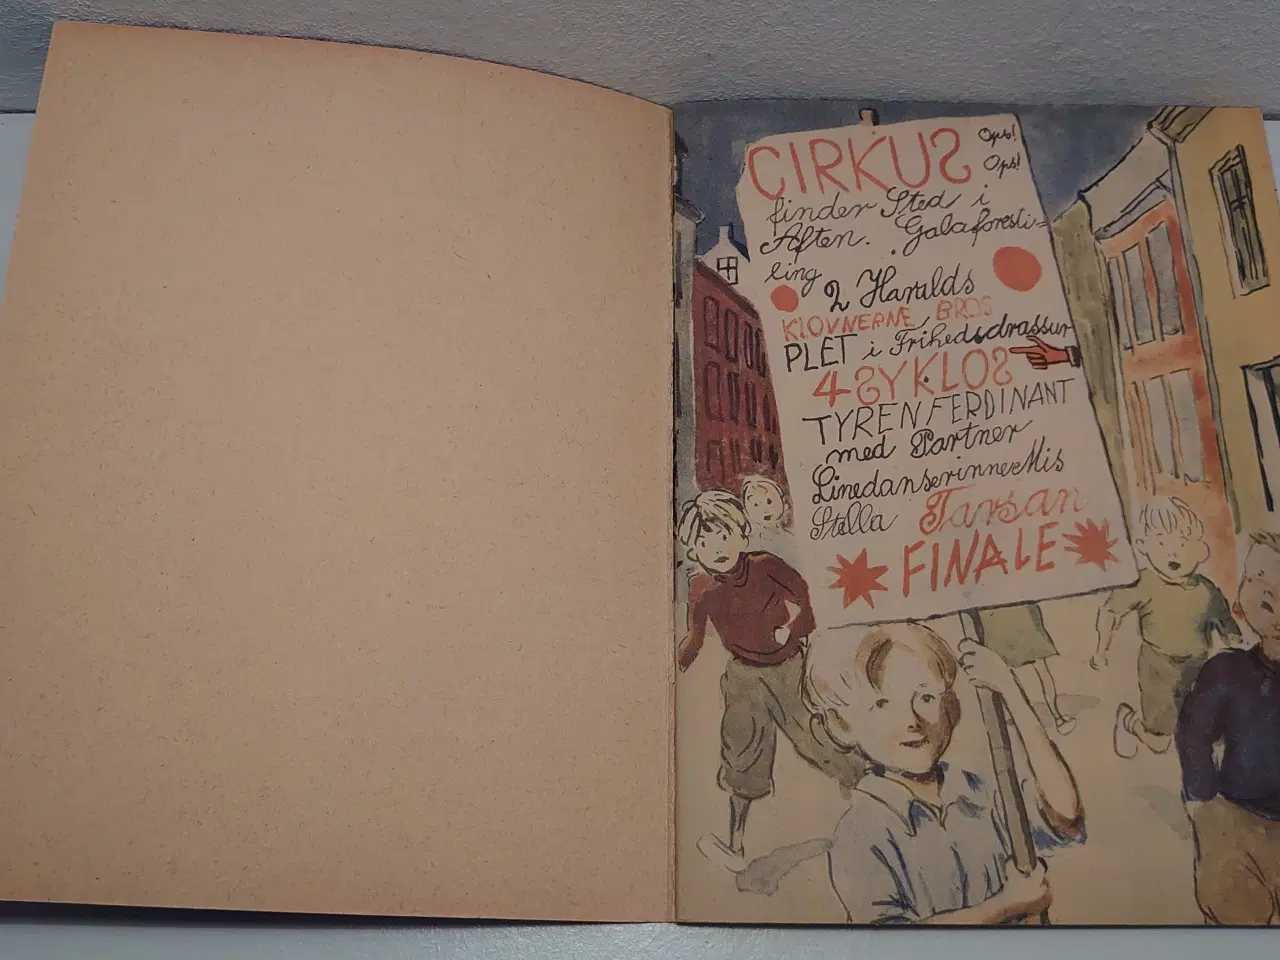 CIRKUS Ops!
Ops!
finder Sted i
Aften. Galaforestil=
ling
2 Haralds
KLOVNERNE BROS
PLET i Frihedsdrassur
4 SYKLOS
TYREN FERDINANT
med Partner
Linedanserinne Mis
Stella Tarsan
FINALE